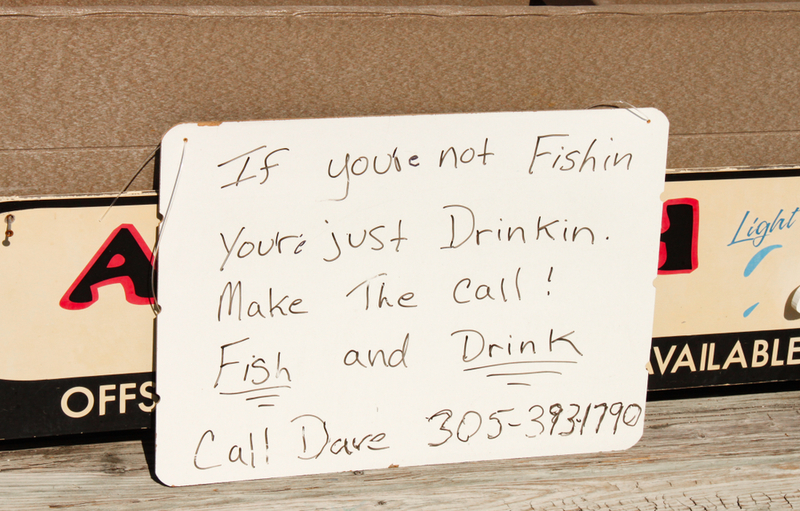 If you're not Fishin
You're just Drinkin.
Make The call!
Fish and Drink
Call Dave 305-393-1790
A H Light
OFFS AVAILABLE